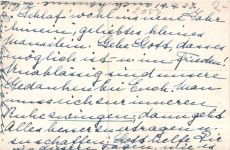 19.9.23.
Schlaf wohl ins neue Jahr
hinein, geliebtes kleines
Gebe Gott, dass es
möglich ist in Frieden!
Unablässig sind unsere
Gedanken bei Euch, man
muss sich zur inneren
Ruhe zwingen, dann geht
Alles besser zu ertragen u.
zu schaffen. Gott helfe Dir